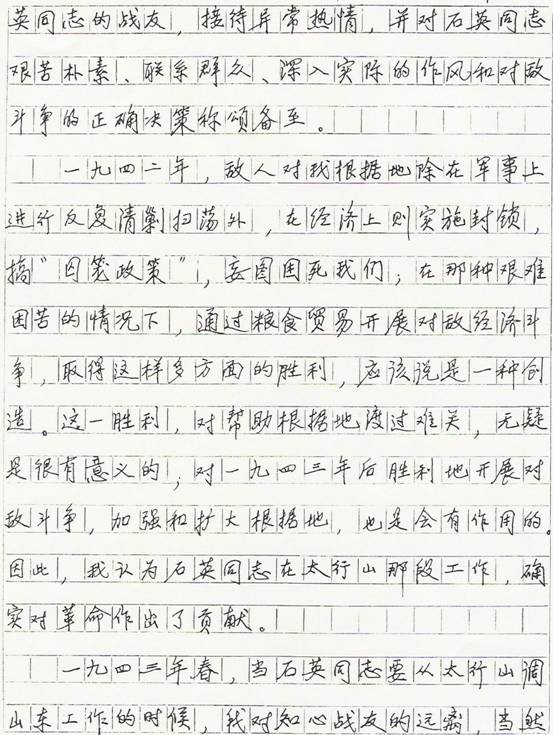 英同志的战友，接待异常热情，并对石英同志
艰苦朴素、联系群众、深入实际的作风和对敌
斗争的正确决策称颂备至。
一九四二年，敌人对我根据地除在军事上
进行反复清剿扫荡外，在经济上则实施封锁，
搞“囚笼政策”，妄图困死我们；在那种艰难
困苦的情况下，通过粮食贸易开展对敌经济斗
争，取得这样多方面的胜利，应该说是一种创
造。这一胜利，对帮助根据地渡过难关，无疑
是很有意义的；对一九四三年后胜利地开展对
敌斗争，加强和扩大根据地，也是会有作用的。
因此，我认为石英同志在太行山那段工作，确
实对革命作出了贡献。
一九四三年春，当石英同志要从太行山调
山东工作的时候，我对知心战友的远离，当然